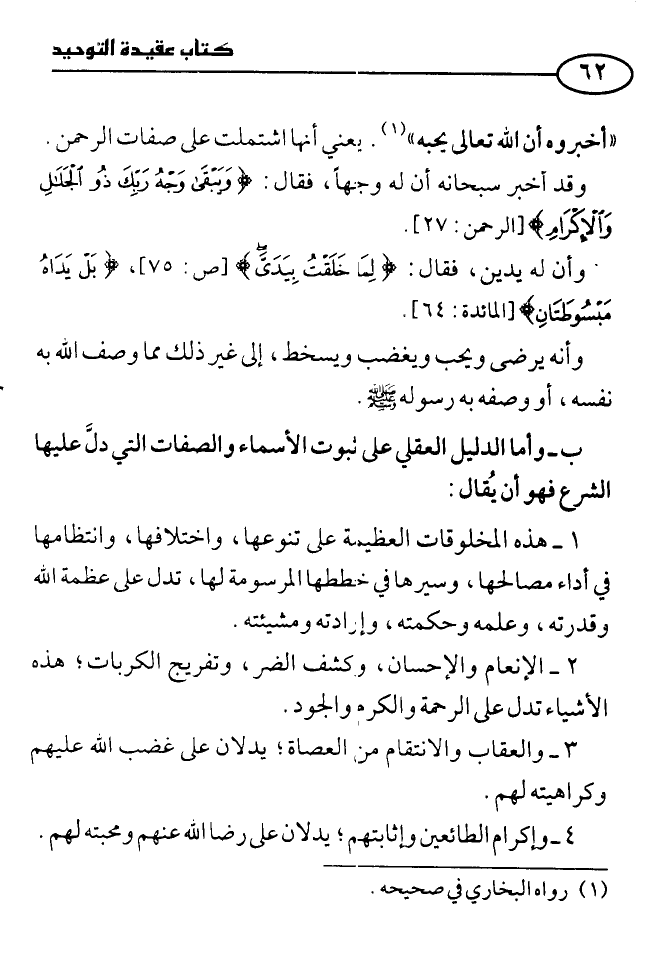 كتاب عقيدة التوحيد
٦٢
«أخبروه أن الله تعالى يحبه»(١). يعني أنها اشتملت على صفات الرحمن.
وقد أخبر سبحانه أن له وجهاً، فقال: ﴿وَيَبْقَىٰ وَجْهُ رَبِّكَ ذُو الْجَلَالِ
وَالْإِكْرَامِ﴾ [الرحمن: ٢٧].
وأن له يدين، فقال: ﴿لِمَا خَلَقْتُ بِيَدَيَّ﴾ [ص: ٧٥]، ﴿بَلْ يَدَاهُ
مَبْسُوطَتَانِ﴾ [المائدة: ٦٤].
وأنه يرضى ويحب ويغضب ويسخط، إلى غير ذلك مما وصف الله به
نفسه، أو وصفه به رسوله ﷺ.
ب ـ وأما الدليل العقلي على ثبوت الأسماء والصفات التي دلَّ عليها
الشرع فهو أن يُقال:
١ ـ هذه المخلوقات العظيمة على تنوعها، واختلافها، وانتظامها
في أداء مصالحها، وسيرها في خططها المرسومة لها، تدل على عظمة الله
وقدرته، وعلمه وحكمته، وإرادته ومشيئته.
٢ ـ الإنعام والإحسان، وكشف الضر، وتفريج الكربات؛ هذه
الأشياء تدل على الرحمة والكرم والجود.
٣ ـ والعقاب والانتقام من العصاة؛ يدلان على غضب الله عليهم
وكراهيته لهم.
٤ ـ وإكرام الطائعين وإثابتهم؛ يدلان على رضا الله عنهم ومحبته لهم.
(١) رواه البخاري في صحيحه.